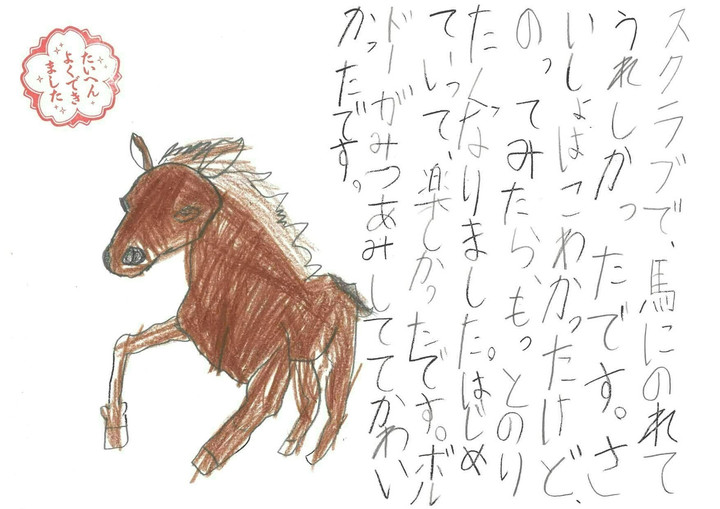 スクラブで、馬にのれて
うれしかったです。さ
いしょはこわかったけど、
のってみたら、もっとのり
たくなりました。はじめ
ていって、楽しかったです。ボル
ドーがみつあみしててかわい
かったです。
たいへん
よくでき
ました